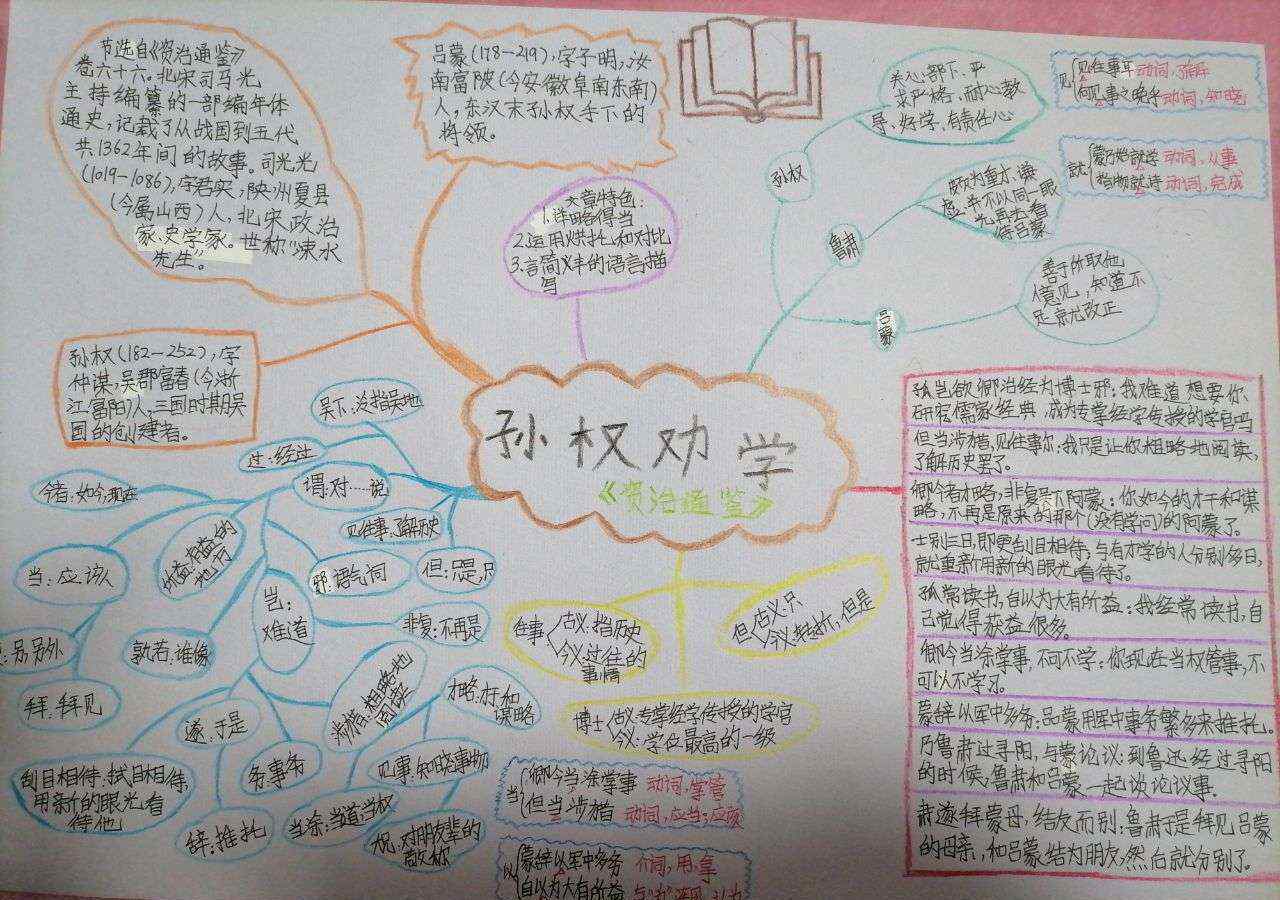 节选自《资治通鉴》
卷六十六。北宋司马光
主持编纂的一部编年体
通史,记载了从战国到五代
共1362年间的故事。司光光
(1019-1086),字君实,陕州夏县
(今属山西)人,北宋政治
家、史学家。世称“涑水
先生”。
吕蒙(178-219),字子明,汝
南富陂(今安徽阜南东南)
人,东汉末孙权手下的
将领。
孙权(182-252),字
仲谋,吴郡富春(今浙
江富阳)人,三国时期吴
国的创建者。
文章特色:
1.详略得当
2.运用烘托和对比
3.言简义丰的语言描
写
孙权
关心部下、严
求严格、耐心教
导、好学、有责任心
鲁肃
敬才为重才、谦
虚、并不以同一眼
光再去看
待吕蒙
吕蒙
善于听取他
人意见,知道不
足就改正
见
见往事耳 动词,了解
何见事之晚乎 动词,知晓
就
蒙乃始就学 动词,从事
指物就诗 动词,完成
孙权劝学
《资治通鉴》
吴下:泛指吴地
过:经过
谓:对……说
今者:如今,现在
见往事:了解历史
当:应该
邪:语气词
但:只是,只
岂:
难道
非复:不再是
孰若:谁像
拜:拜见
才略:才和
谋略
遂:于是
务:事务
见事:知晓事物
刮目相待:拭目相待,
用新的眼光看
待他
辞:推托
当涂:当道,当权
对朋友辈的
敬称
往事
古义:指历史
今义:过往的
事情
但
古义:只
今义:转折,但是
博士
古义:专掌经学传授的学官
今义:学位最高的一级
当
卿今当涂掌事 动词,掌管
但当涉猎 动词,应当;应该
以
蒙辞以军中多务 介词,用,拿
自以为大有所益
孤岂欲卿治经为博士邪:我难道想要你
研究儒家经典,成为专掌经学传授的学官吗
但当涉猎,见往事尔:我只是让你粗略地阅读,
了解历史罢了。
卿今者才略,非复吴下阿蒙:你如今的才干和谋
略,不再是原来的那个(没有学问)的阿蒙了。
士别三日,即更刮目相待:与有才学的人分别多日,
就重新用新的眼光看待了。
孤常读书,自以为大有所益:我经常读书,自
己觉得获益很多。
卿今当涂掌事,不可不学:你现在当权管事,不
可以不学习。
蒙辞以军中多务:吕蒙用军中事务繁多来推托。
乃鲁肃过寻阳,与蒙论议:到鲁迅经过寻阳
的时候,鲁肃和吕蒙一起谈论议事。
肃遂拜蒙母,结友而别:鲁肃于是拜见吕蒙
的母亲,和吕蒙结为朋友,然后就分别了。